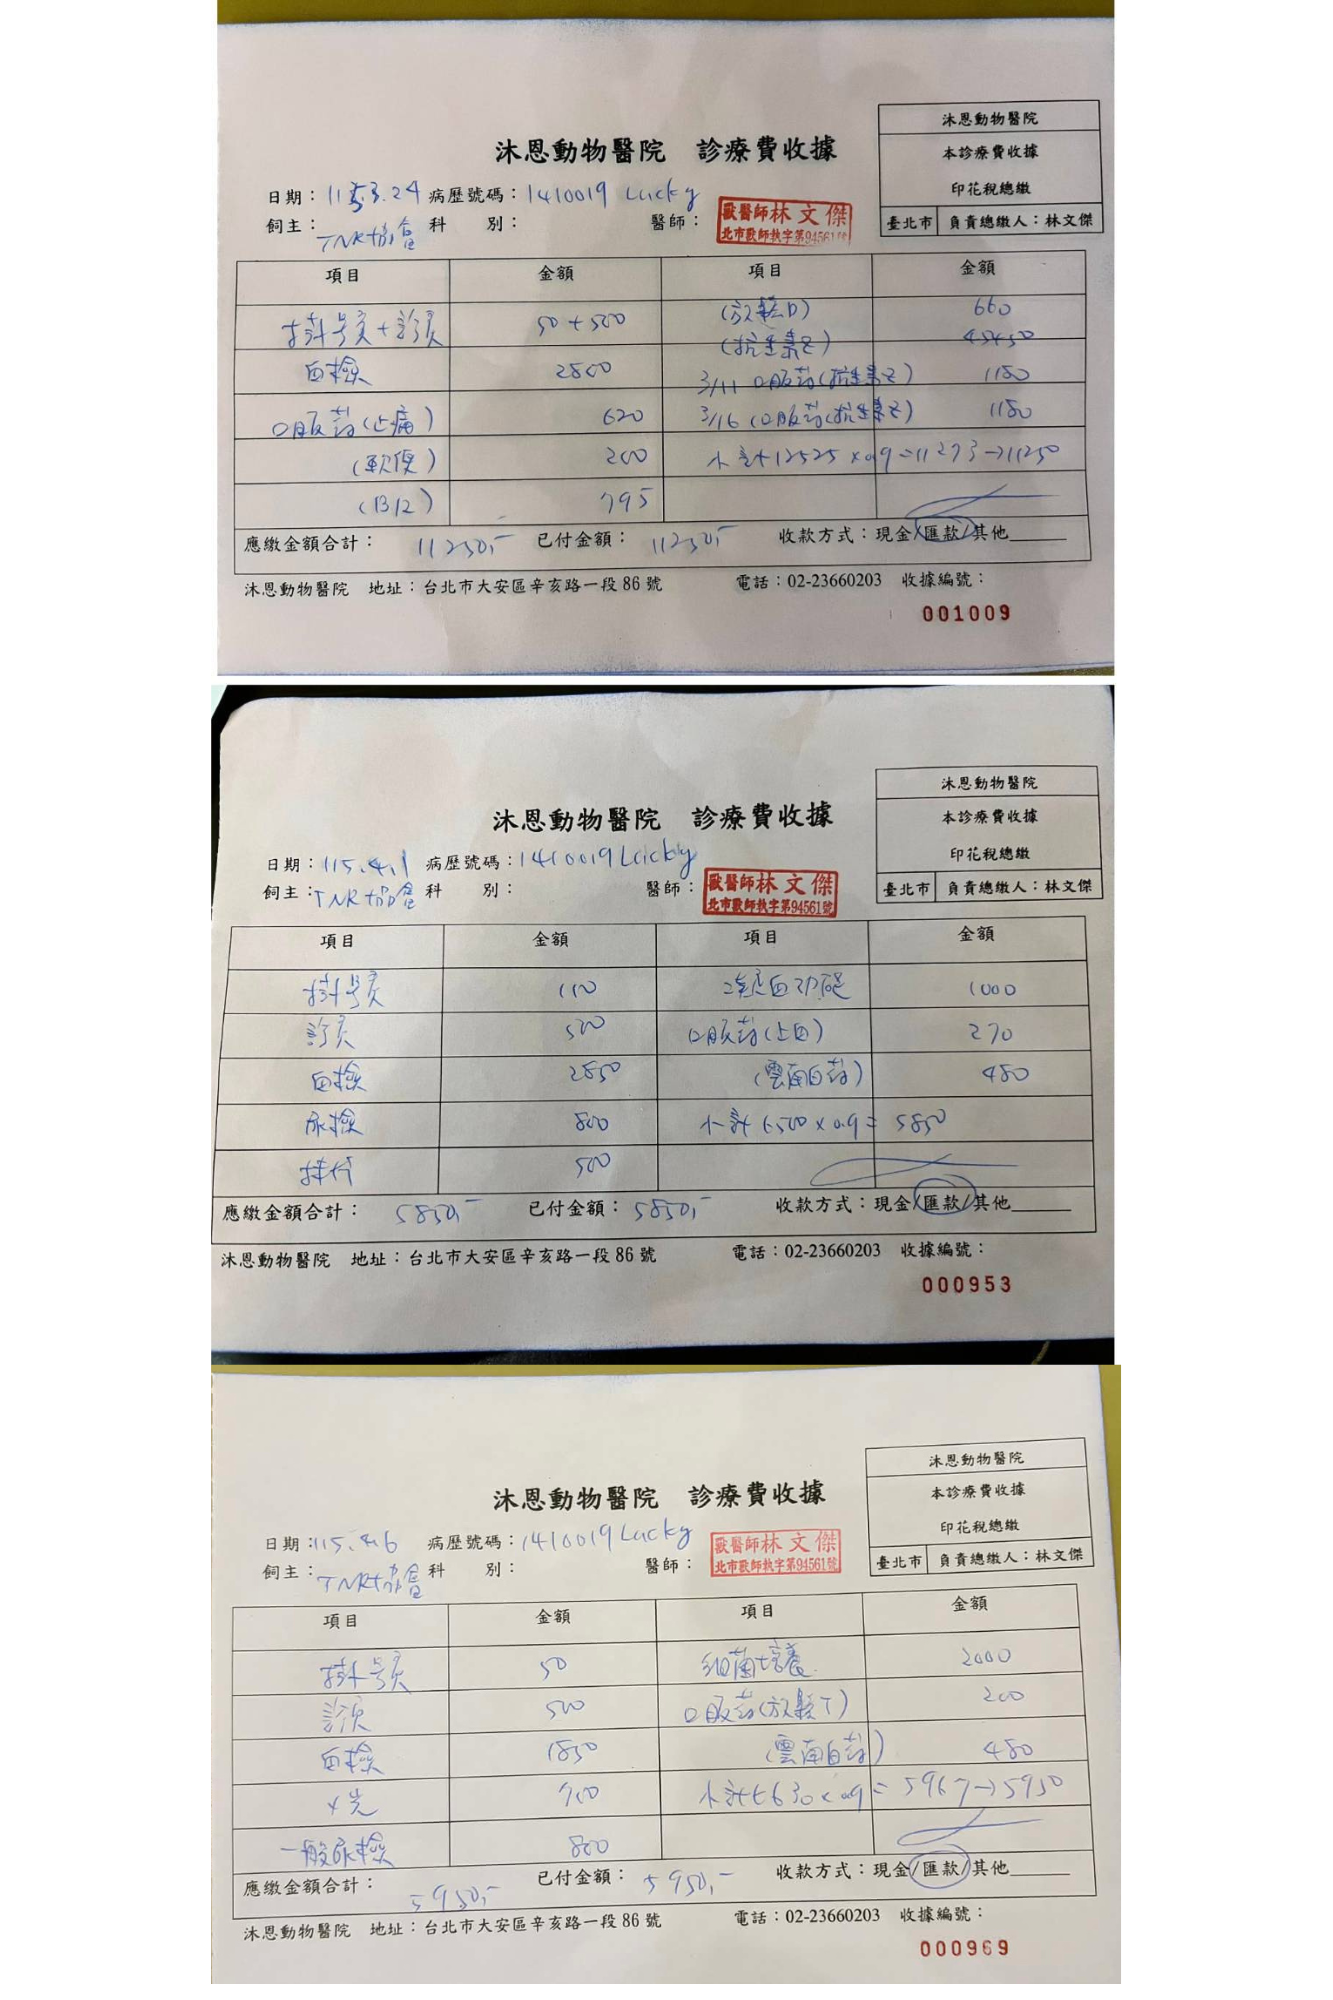 沐恩動物醫院 診療費收據
沐恩動物醫院
本診療費收據
印花稅總繳
臺北市 負責總繳人：林文傑
日期：115.3.24 病歷號碼：1410019 Lucky
飼主：TNR協會 科 別： 醫師：
獸醫師林文傑
北市獸師執字第94561號
項目 金額 項目 金額
掛號費+診費 50+500 (放鬆D) 660
(抗生素Z)
血檢 3/11 口服药(抗生素Z) 1150
口服药(止痛) 620 3/16 (口服药(抗生素Z) 1150
(軟便) 200 小計12525×0.9=11273→11250
(B12) 795
應繳金額合計： 11250,- 已付金額： 11250,- 收款方式：現金/匯款/其他
沐恩動物醫院 地址：台北市大安區辛亥路一段 86 號 電話：02-23660203 收據編號：
001009
沐恩動物醫院 診療費收據
沐恩動物醫院
本診療費收據
印花稅總繳
臺北市 負責總繳人：林文傑
日期：115.4.1 病歷號碼：1410019 Lucky
飼主：TNR協會 科 別： 醫師：
獸醫師林文傑
北市獸師執字第94561號
項目 金額 項目 金額
掛號費 100 凝血功能 1000
診費 500 口服药(止血) 270
血檢 2850 (雲南白药) 480
尿檢 800 小計6500×0.9= 5850
500
應繳金額合計： 5850,- 已付金額： 5850,- 收款方式：現金/匯款/其他
沐恩動物醫院 地址：台北市大安區辛亥路一段 86 號 電話：02-23660203 收據編號：
000953
沐恩動物醫院 診療費收據
沐恩動物醫院
本診療費收據
印花稅總繳
臺北市 負責總繳人：林文傑
日期：115.4.6 病歷號碼：1410019 Lucky
飼主：TNR協會 科 別： 醫師：
獸醫師林文傑
北市獸師執字第94561號
項目 金額 項目 金額
掛號費 50 細菌培養 2000
診費 500 口服药(放鬆T) 200
血檢 1850 (雲南白药) 480
X光 700 小計6630×0.9= 5967→5950
一般尿檢 800
應繳金額合計： 5950,- 已付金額： 5950,- 收款方式：現金/匯款/其他
沐恩動物醫院 地址：台北市大安區辛亥路一段 86 號 電話：02-23660203 收據編號：
000969